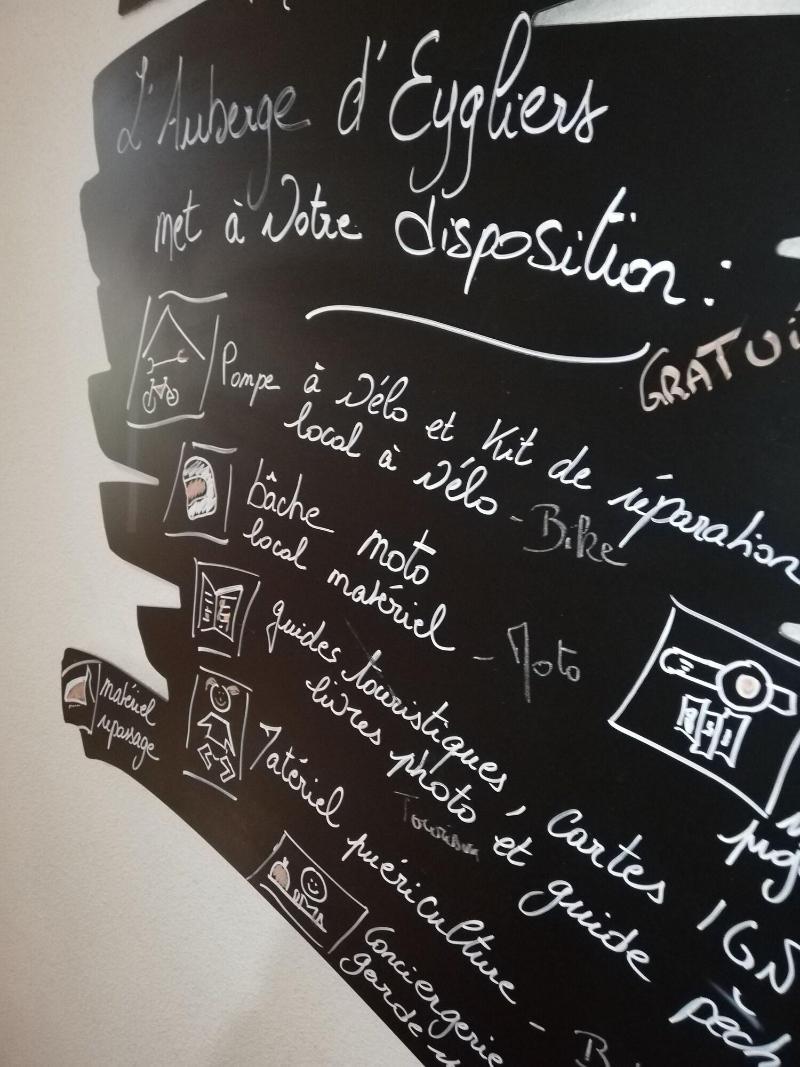 L'Auberge d'Eygliers
met à Votre disposition :
GRATUI
Pompe à Vélo et Kit de réparation
local à Vélo - Bike
bâche moto
local matériel - Moto
guides touristiques, cartes IGN
livres photo et guide pêch
Tourism
matériel
repassage
Matériel puériculture - B
Conciergerie
garde